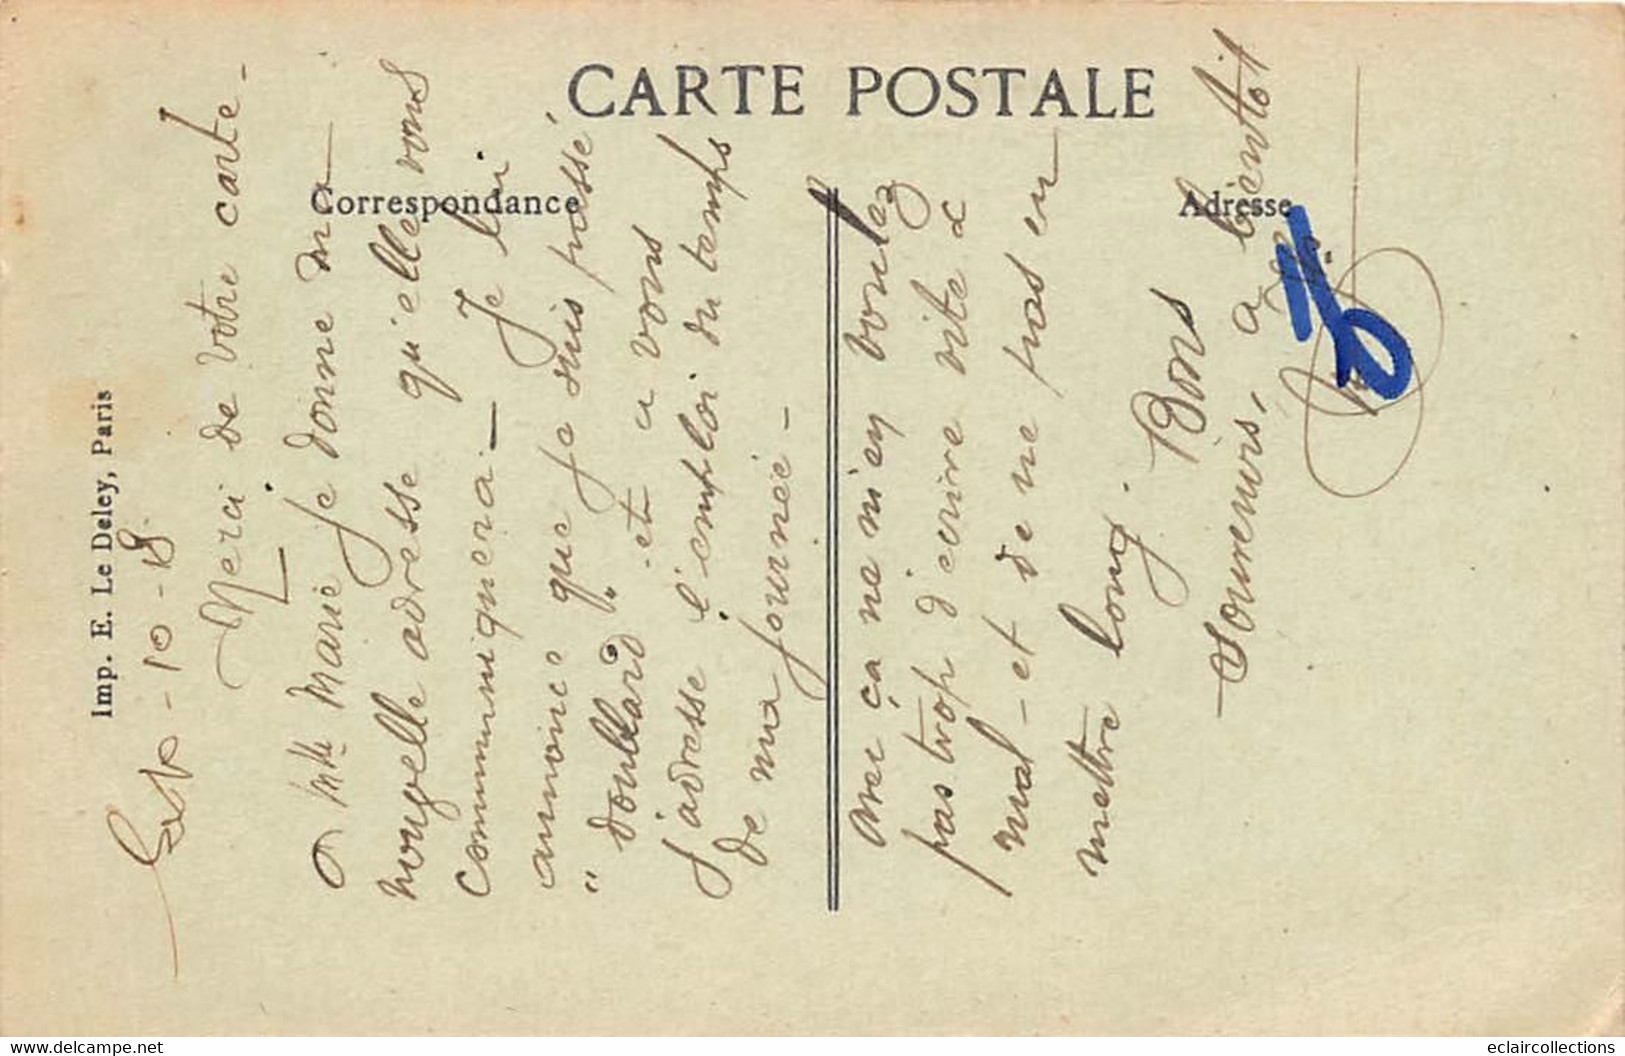 CARTE POSTALE
Correspondance
Adresse
Imp. E. Le Deley, Paris
-10-18
Merci de votre carte -
à Mlle Marie je donne ma
nouvelle adresse qu'elle vous
communiquera - Je lui
annonce que je suis passé
"doublard" et à vous
j'adresse l'emploi du temps
de ma journée -
Avec ça ne m'en voulez
pas trop d'écrire vite &
mal - et de ne pas en
mettre long. Bons
souvenirs, à bientôt
www.delcampe.net
eclaircollections